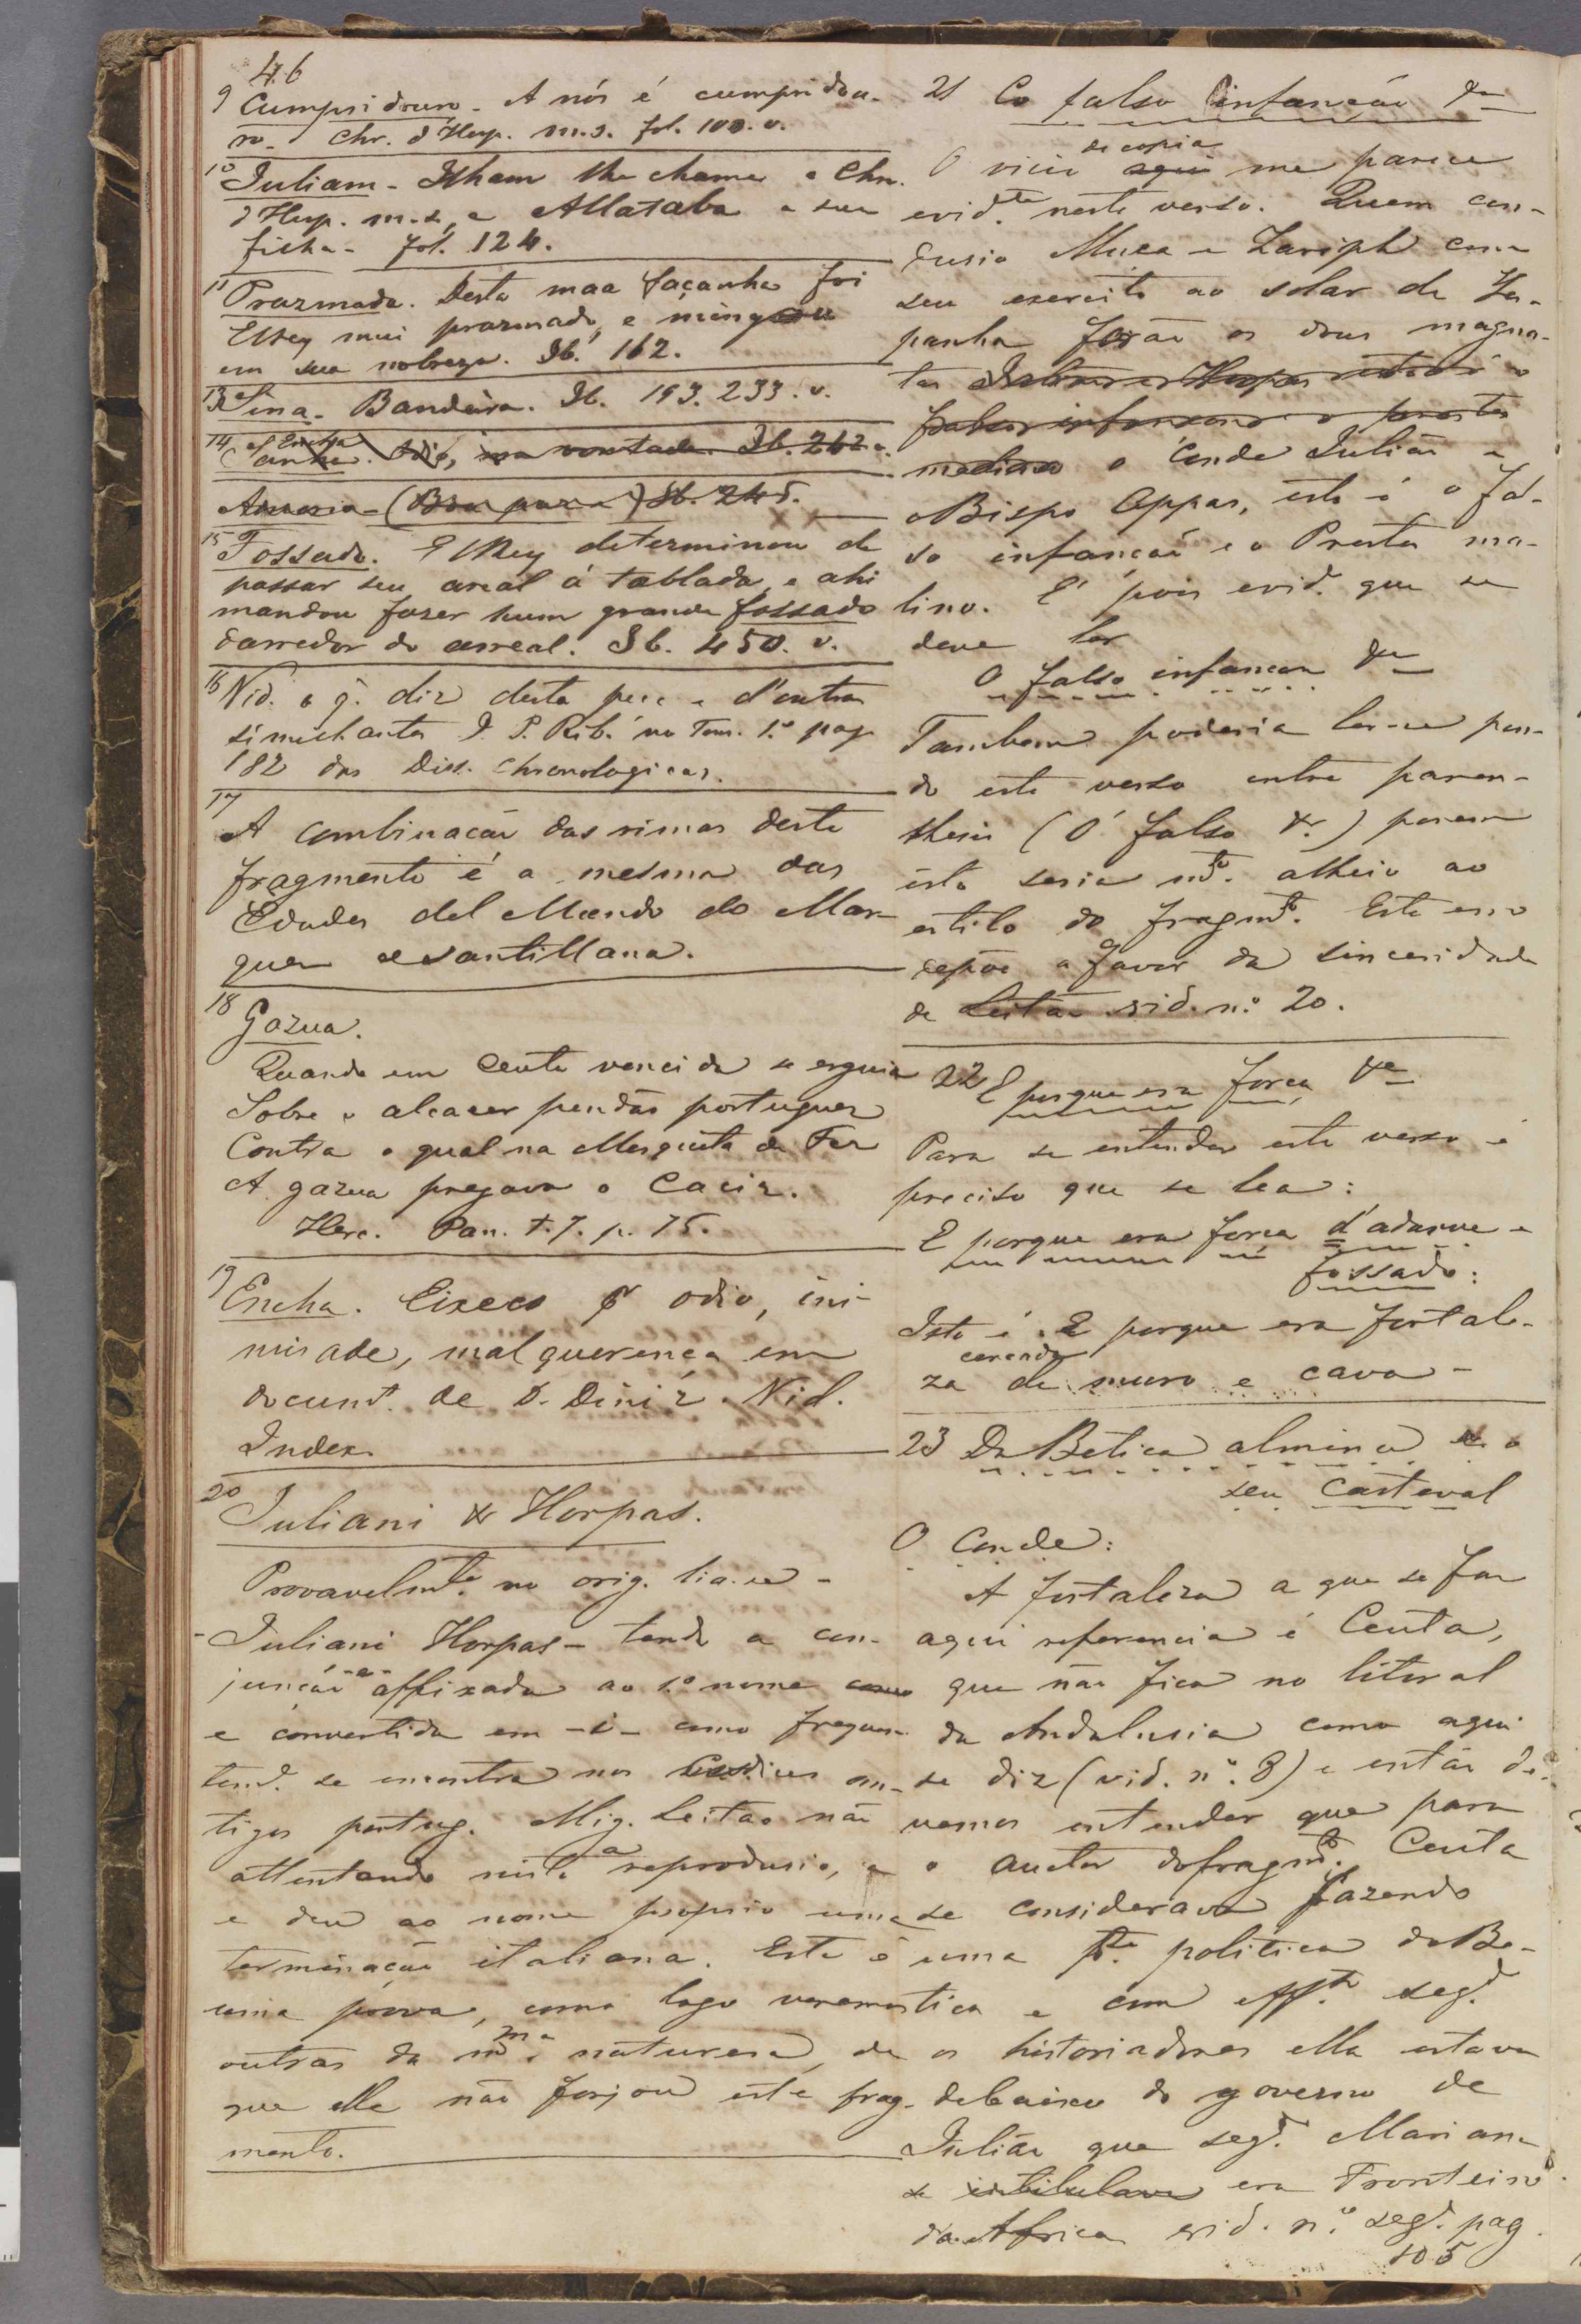 46
9 Cumpridouro - A nós é cumpridou-
ro - Chr. d'Hesp. m.s. fol. 100. v.
10 Juliam - Ilham lhe chama a Chr.
d'Hesp. m.s, e Allataba a sua
filha - fol. 124.
11 Prazmado. Desta maa façanha foi
ElRey mui prazmado, e mingou
em sua nobreza. Ib. 162.
13 Sina - Bandeira. Ib. 193. 233. v.
14 Encha odio, ma vontade. Ib. 262 v.
15 Fossado. ElRey determinou de
passar seu areal á tablada, e ahi
mandou fazer hum grande fossado
darredor do arreal. Ib. 450. v.
16 Vid. o q. diz desta peça e d'outras
similhantes J. P. Rib. no Tom. 1.º pag
182 das Diss. Chronologicas.
17
A combinação das rimas deste
fragmento é a mesma das
Edades del Mundo do Mar-
quez de Santillana.
18 Gazua.
Quando em Ceuta vencida se erguia
Sobre o alcacer pendão portuguez
Contra o qual na Mesquita de Fez
A gazua pregava o Caciz.
Herc. Pan. t. 7. p. 75.
19 Encha. Eixeco odio, ini-
misade, malquerença em
docum.t de D. Diniz. Vid.
Index.
20 Juliani & Horpas.
Provavelm.te no orig. lia-se -
- Juliani Horpas - tendo a con-
juncção -e- affixada ao 1.º nome
e convertida em -i- como frequen-
tem.e se encontra nos Codices an-
tigos portug. Mig. Leitão não
attentando nisto a reprodusio,
e deu ao nome proprio uma
terminação italiana. Esta é
uma prova, como logo veremos
outras da m.ma naturesa, de
que elle não forjou este frag-
mento.
21 Co falso infanção &a
O vicio de copia me parece
evid.te neste verso. Quem con-
dusio Muça e Zariph com
seu exercito ao solar de Hes-
panha forão os dous magna-
tas
o Conde Julião e
Bispo Oppas, isto é o fal-
so infanção e o Presta ma-
lino. E' pois evid. que se
deve ler
O falso infançon &a
Tambem poderia ler-se pon-
do este verso entre paren-
thesis (O' falso &.) porem
isto seria m.to alheio ao
estilo do fragm.to. Este erro
depõe a favor da sinceridade
de Leitão vid. n.º 20.
22 E porque era força &a
Para se entender este verso é
preciso que se lea:
E porque era força d'adarve e
fossado:
Isto é. E porque era fortale-
za cercada de muro e cava -
23 Da Betica almina e o
seu casteval
O Conde:
A fortaleza a que se faz
aqui referencia é Ceuta,
que não fica no litoral
da Andalusia como aqui
se diz (vid. n.º 8) e então de-
vemos entender que para
o auctor do fragm.to Ceuta
se considerava fazendo
uma p.te politica da Be-
tica e com eff.to seg.d
os historiadores ella estava
debaixo do governo de
Julião que seg.d Mariana
se intitulava era Fronteiro
da Africa vid. n.º seg.e pag.
105